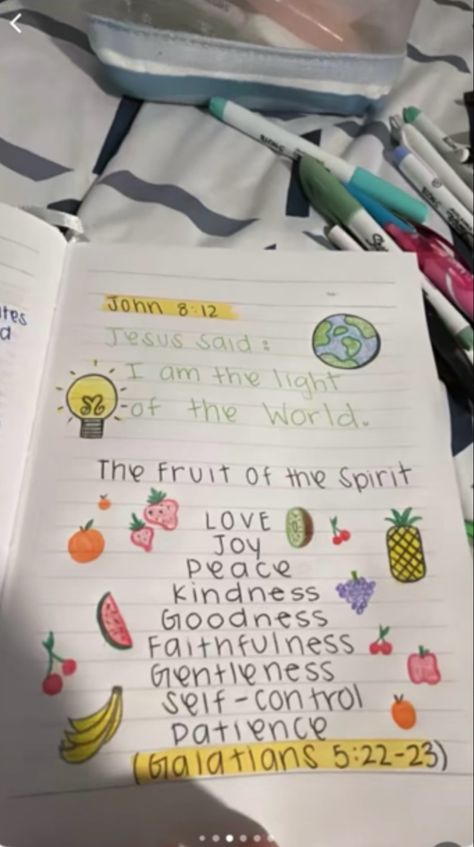 John 8:12
Jesus said:
I am the light
of the World.
The Fruit Of the Spirit
LOVE
Joy
Peace
Kindness
Goodness
Faithfulness
Gentleness
Self-control
Patience
(Galatians 5:22-23)